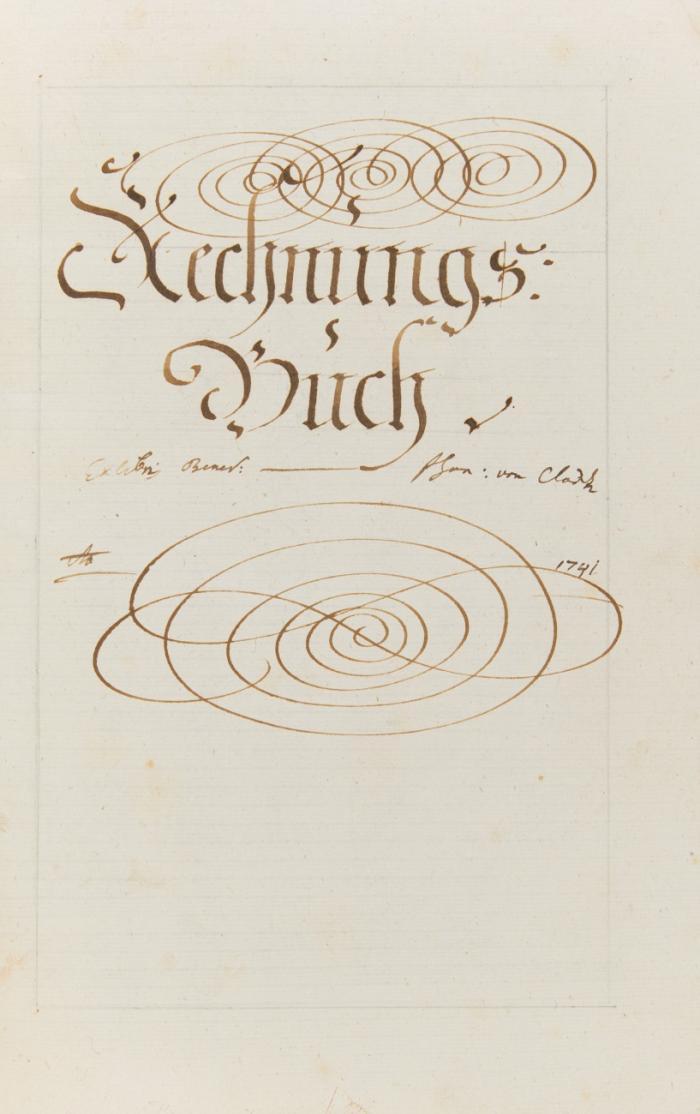 Rechnungs:
Buch
Ex libris Bened: von
Ao 1741